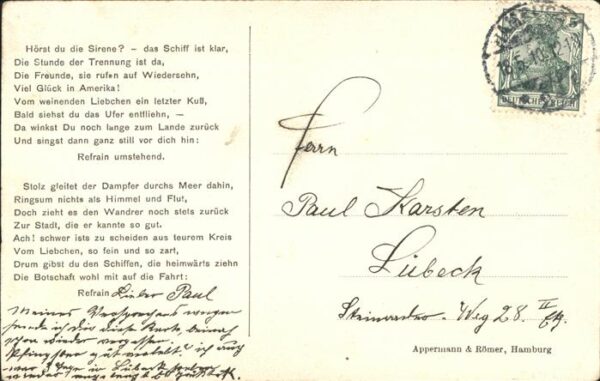 Hörst du die Sirene? – das Schiff ist klar,
Die Stunde der Trennung ist da,
Die Freunde, sie rufen auf Wiedersehn,
Viel Glück in Amerika!
Vom weinenden Liebchen ein letzter Kuß,
Bald siehst du das Ufer entfliehn, –
Da winkst Du noch lange zum Lande zurück
Und singst dann ganz still vor dich hin:
Refrain umstehend.
Stolz gleitet der Dampfer durchs Meer dahin,
Ringsum nichts als Himmel und Flut,
Doch zieht es den Wandrer noch stets zurück
Zur Stadt, die er kannte so gut.
Ach! schwer ists zu scheiden aus teurem Kreis
Vom Liebchen, so fein und so zart,
Drum gibst du den Schiffen, die heimwärts ziehn
Die Botschaft wohl mit auf die Fahrt:
Refrain
Lieber Paul
Meines Versprechens wegen
sende ich dir diese Karte, beinah
schon wieder vergessen.
Pfingsten gut verlebt? ich auch
war 3 Tage in Lübeck
DEUTSCHES REICH
Herrn
Paul Karsten
Lübeck
Weg 28. II Etg.
Appermann & Römer, Hamburg